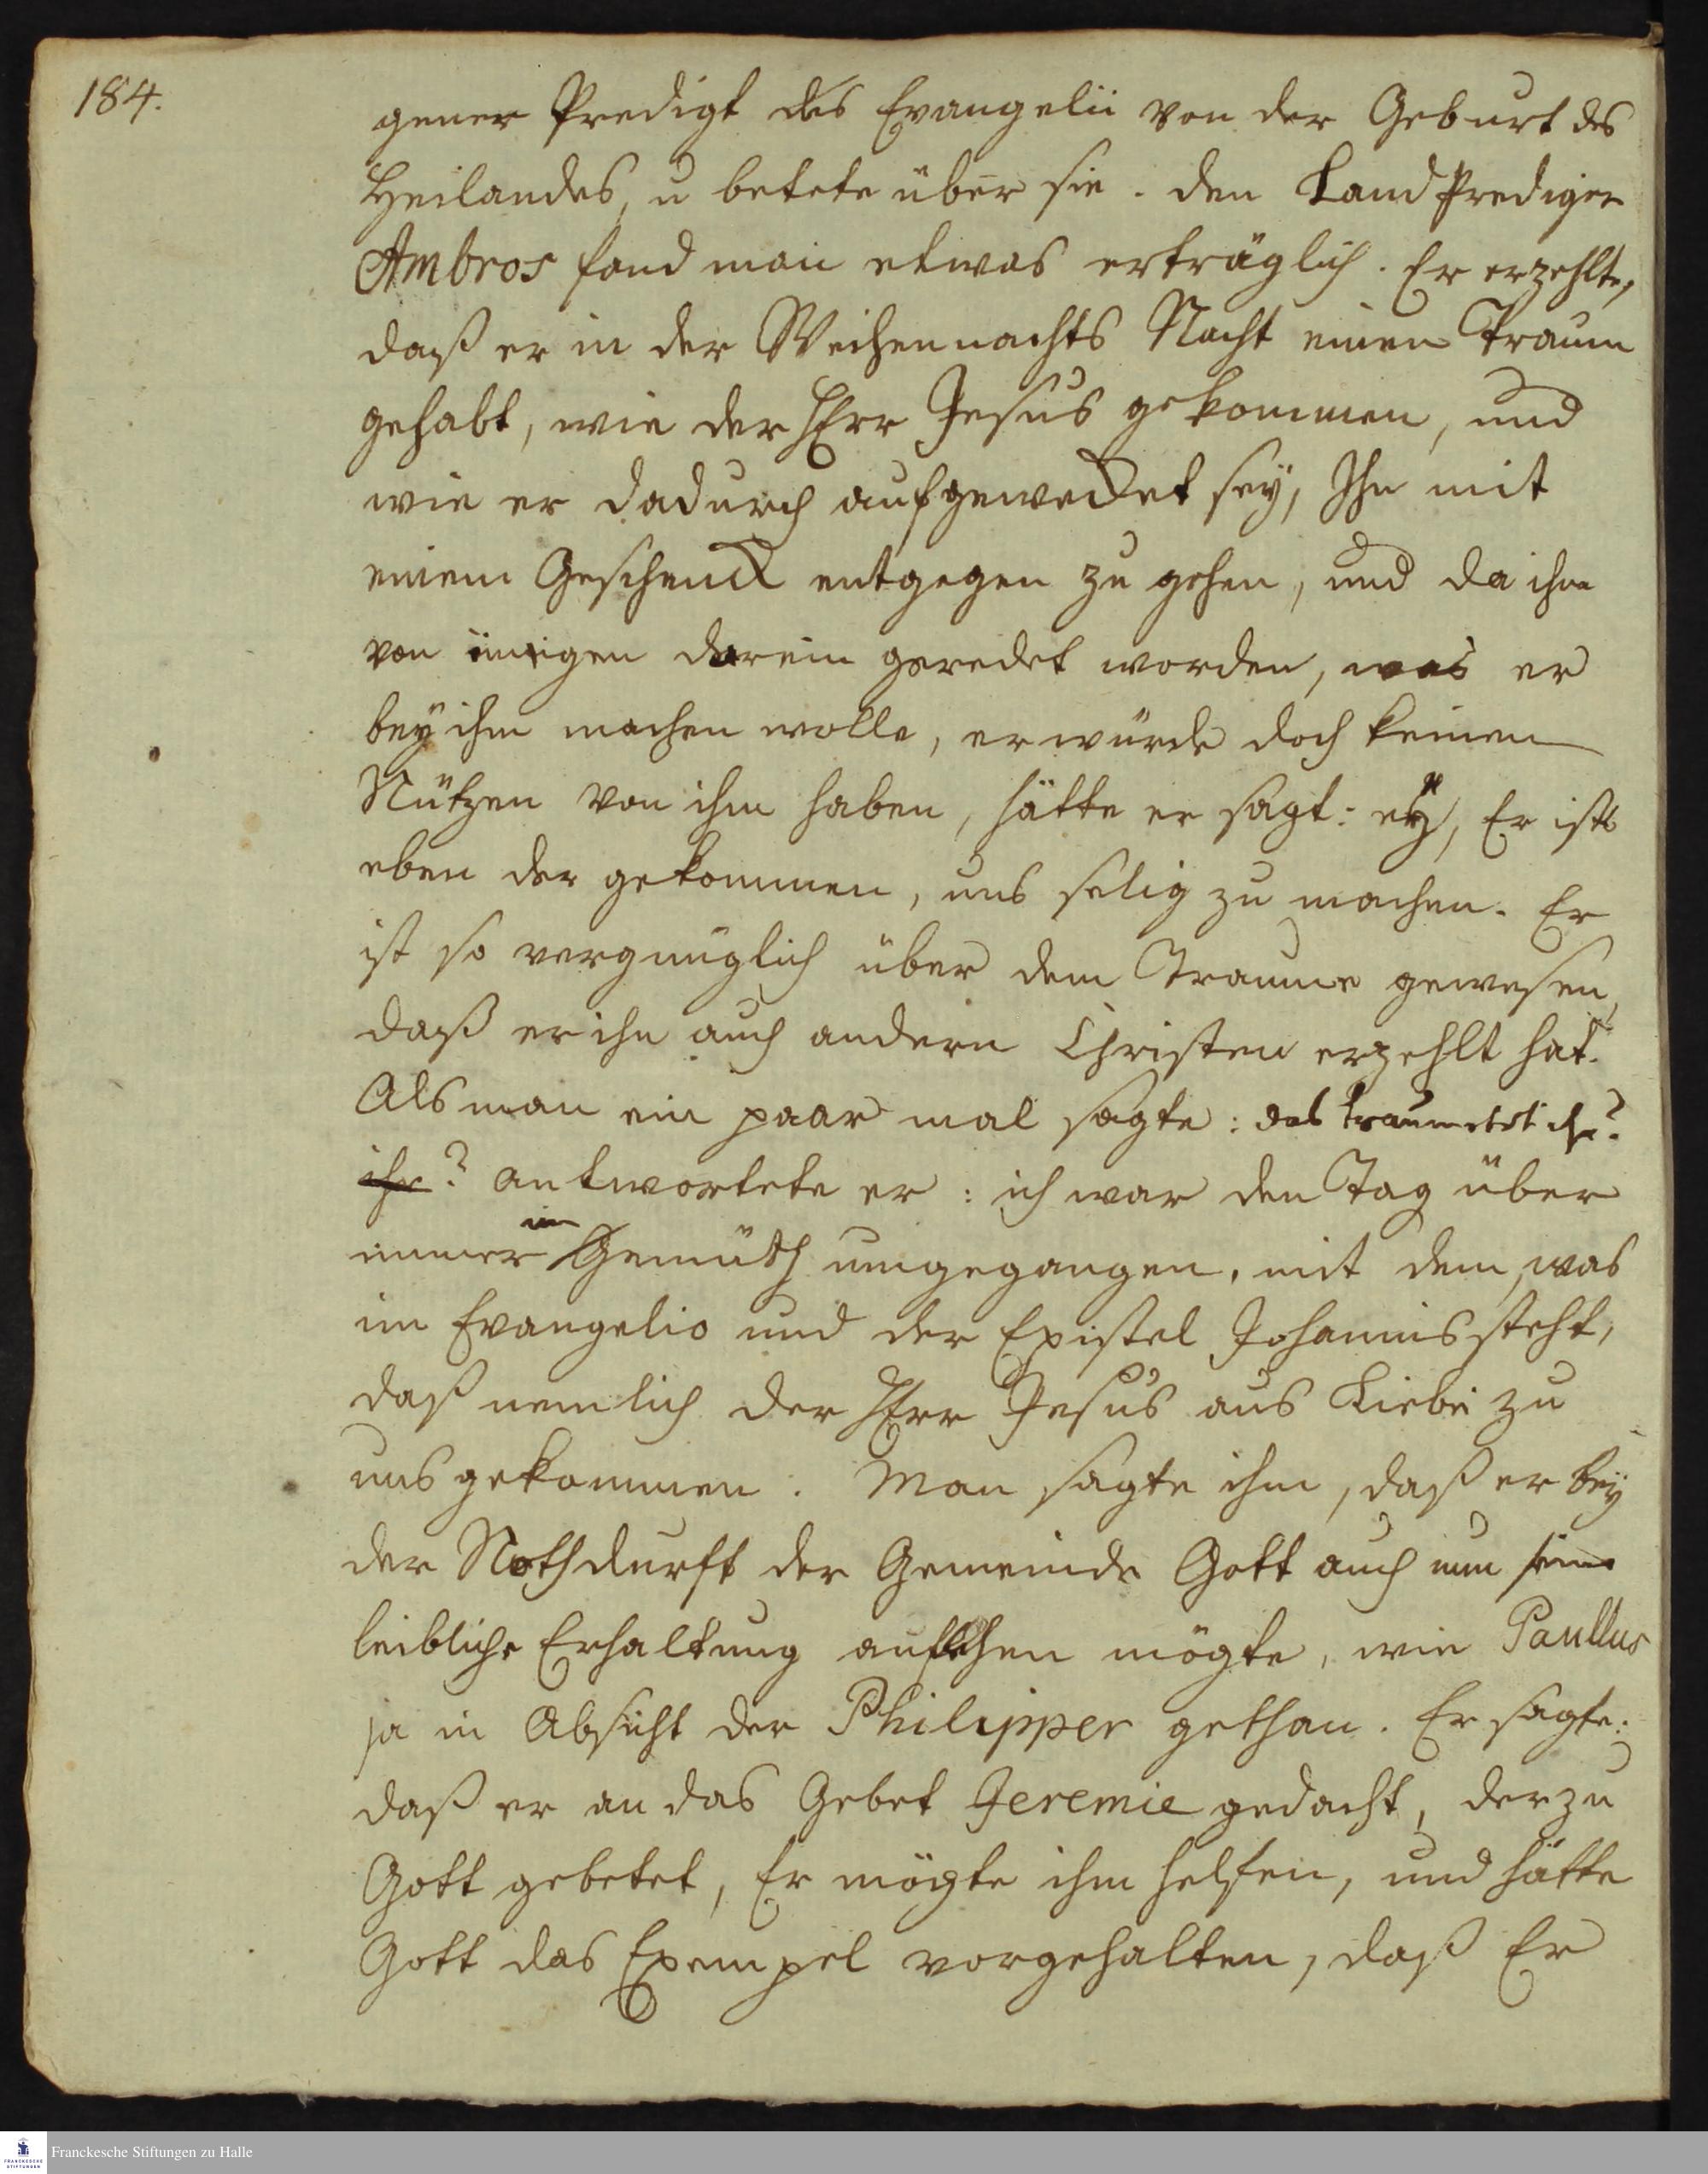 184.
gener Predigt des Evangelii von der Geburt des
Heilandes, u betete über sie. den Land Prediger
Ambros fand man etwas erträglich. Er erzehlte,
daß er in der Weihennachts Nacht einen Traum
gehabt, wie der HErr Jesus gekommen, und
wie er dadurch aufgewecket sey, Ihn mit
einem Geschenck entgegen zu gehen, und da ihm
von einigen darein geredet worden, was er
bey ihm machen wolle, er würde doch keinen
Nutzen von ihm haben, hätte er sagt: ey, Er ists
eben der gekommen, uns selig zu machen. Er
ist so vergnüglich über dem Traume gewesen,
daß er ihn auch andern Christen erzehlt hat.
Als man ein paar mal sagte: das traumetet ihr?
ihr? antwortete er: ich war den Tag über
immer im Gemüth umgegangen, mit dem, was
im Evangelio und der Epistel Johannis steht,
daß nemlich der HErr Jesus aus Liebe zu
uns gekommen. Man sagte ihm, daß er bey
der Nothdurft der Gemeinde Gott auch um seine
leibliche Erhaltung anflehen mögte, wie Paullus
ja in Absicht der Philipper gethan. Er sagte:
daß er an das Gebet Jeremie gedacht, der zu
Gott gebetet, Er mögte ihm helfen, und hätte
Gott das Exempel vorgehalten, daß Er
Franckesche Stiftungen zu Halle
FRANCKESCHE
STIFTUNGEN